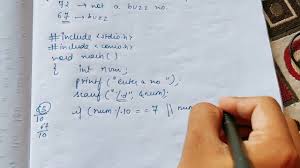 72 → not a buzz no.
67 → buzz
#include <stdio.h>
#include <conio.h>
void main()
{ int num;
printf ("enter a no");
scanf ("%d", &num);
if (num % 10 == 7 || num
10
67
70